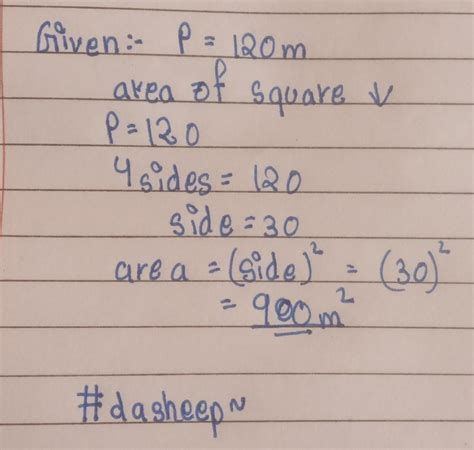 Given:- P = 120m
area of square ↓
P = 120
4 sides = 120
side = 30
area = (side)² = (30)²
= 900m²
#dasheep~